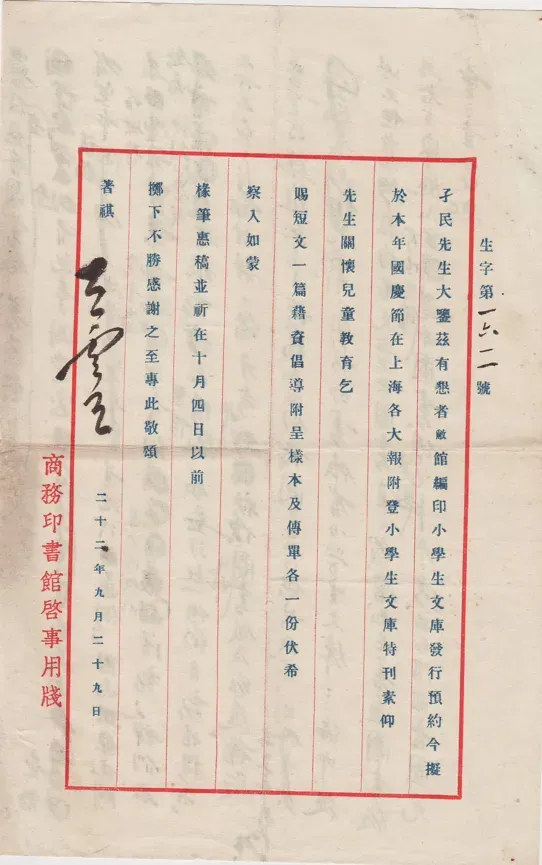 生字第一六二號
孑民先生大鑒茲有懇者敝館編印小學生文庫發行預約今擬
於本年國慶節在上海各大報附登小學生文庫特刊素仰
先生關懷兒童教育乞
賜短文一篇藉資倡導附呈樣本及傳單各一份伏希
察入如蒙
椽筆惠稿並祈在十月四日以前
擲下不勝感謝之至專此敬頌
著祺 王雲五
二十二年九月二十九日
商務印書館啓事用牋